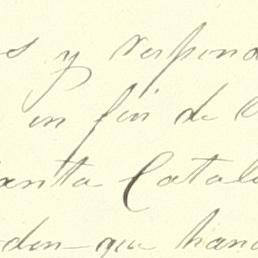 s y respond
en fin de l
anta Catal
den que han